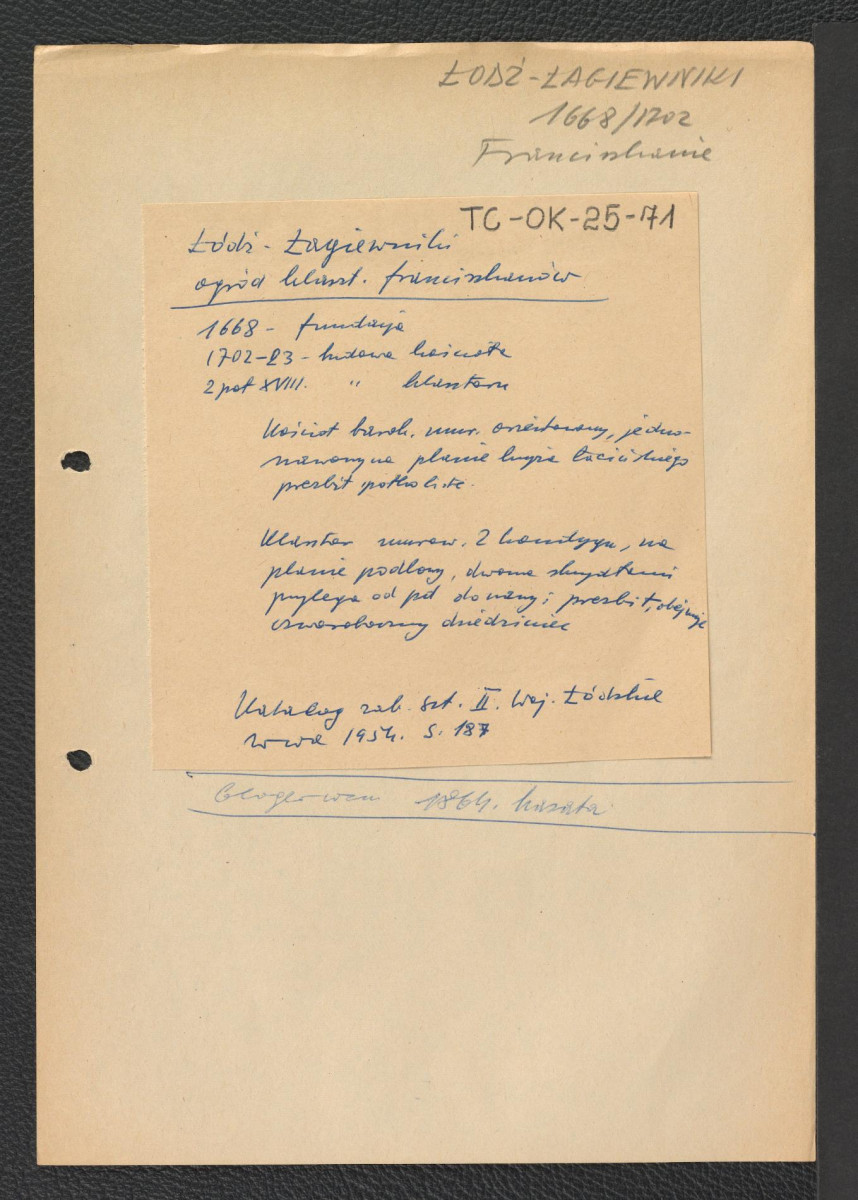 ŁODŹ-ŁAGIEWNIKI
1668/1702
Franciszkanie
TC-OK-25-71
Łódź - Łagiewniki
ogród klaszt. franciszkanów
1668 - fundacja
1702-23 - budowa kościoła
2 poł XVIII. " klasztoru
Kościół barok. mur. orientowany, jedno-
nawowy na planie krzyża łacińskiego
prezbit. półkoliste.
Klasztor murow. 2 kondygn., na
planie podkowy, dwoma skrzydłami
przylega od płd do nawy i prezbit, obejmuje
czworoboczny dziedziniec
Katalog zab. szt. II. Woj. Łódzkie
Wwa 1954. s. 187
1864. kasata